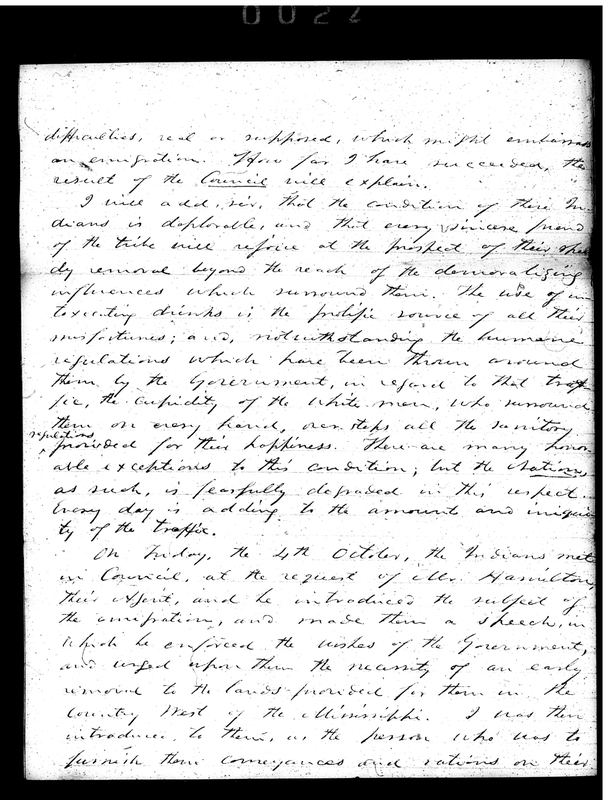 0022
difficulties, real or supposed, which might embarrass
an emigration. How far I have succeeded, the
result of the Council will explain.
I will add, sir, that the condition of these In-
dians is deplorable, and that every sincere friend
of the tribe will rejoice at the prospect of their spee
dy removal beyond the reach of the demoralizing
influences which surround them. The use of in
toxicating drinks is the prolific source of all their
misfortunes; and, notwithstanding the humane
regulations which have been thrown around
them by the Government, in regard to that traf
fic, the cupidity of the white men, who surround
them on every hand, oversteps all the sanitory
regulations
provided for their happiness. There are many honor
able exceptions to this condition; but the Nation,
as such, is fearfully degraded in this respect.
Every day is adding to the amount and iniqui
ty of the traffic.
On Friday, the 4th October, the Indians met
in Council, at the request of Mr. Hamilton,
their Agent, and he introduced the subject of
the emigration, and made them a speech, in
which he enforced the wishes of the Government,
and urged upon them the necessity of an early
removal to the lands provided for them in the
Country West of the Mississippi. I was then
introduced to them, as the person who was to
furnish them conveyances and rations on their